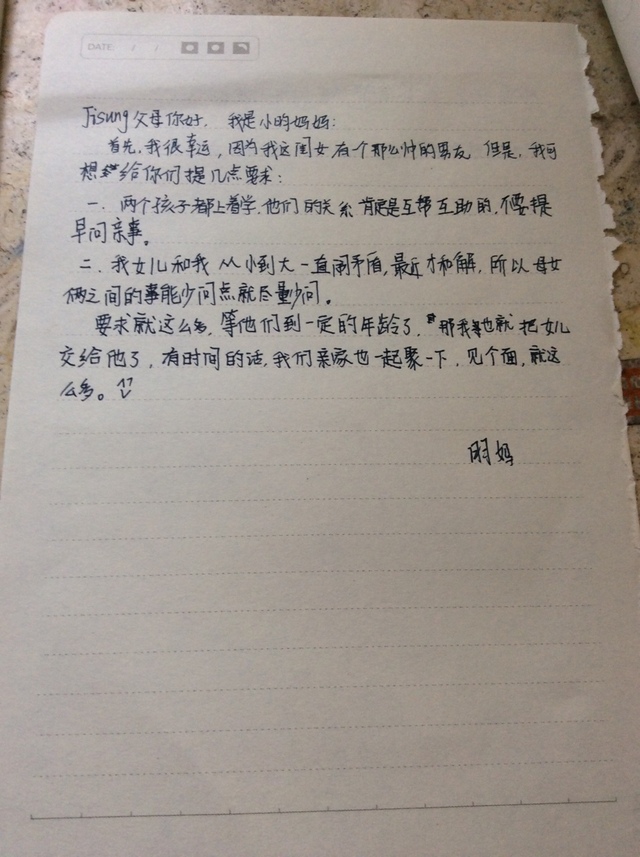 DATE: / /
Jisung父母你好，我是小昀妈妈：
首先，我很幸运，因为我这闺女有个那么帅的男友 但是，我可
想给你们提几点要求：
一．两个孩子都上着学，他们的关系肯定是互帮互助的，不要提
早问亲事。
二．我女儿和我从小到大一直闹矛盾，最近才和解，所以母女
俩之间的事能少问点就尽量少问。
要求就这么多，等他们到一定的年龄了，那我也就把女儿
交给他了，有时间的话，我们亲家也一起聚一下，见个面，就这
么多。
妈